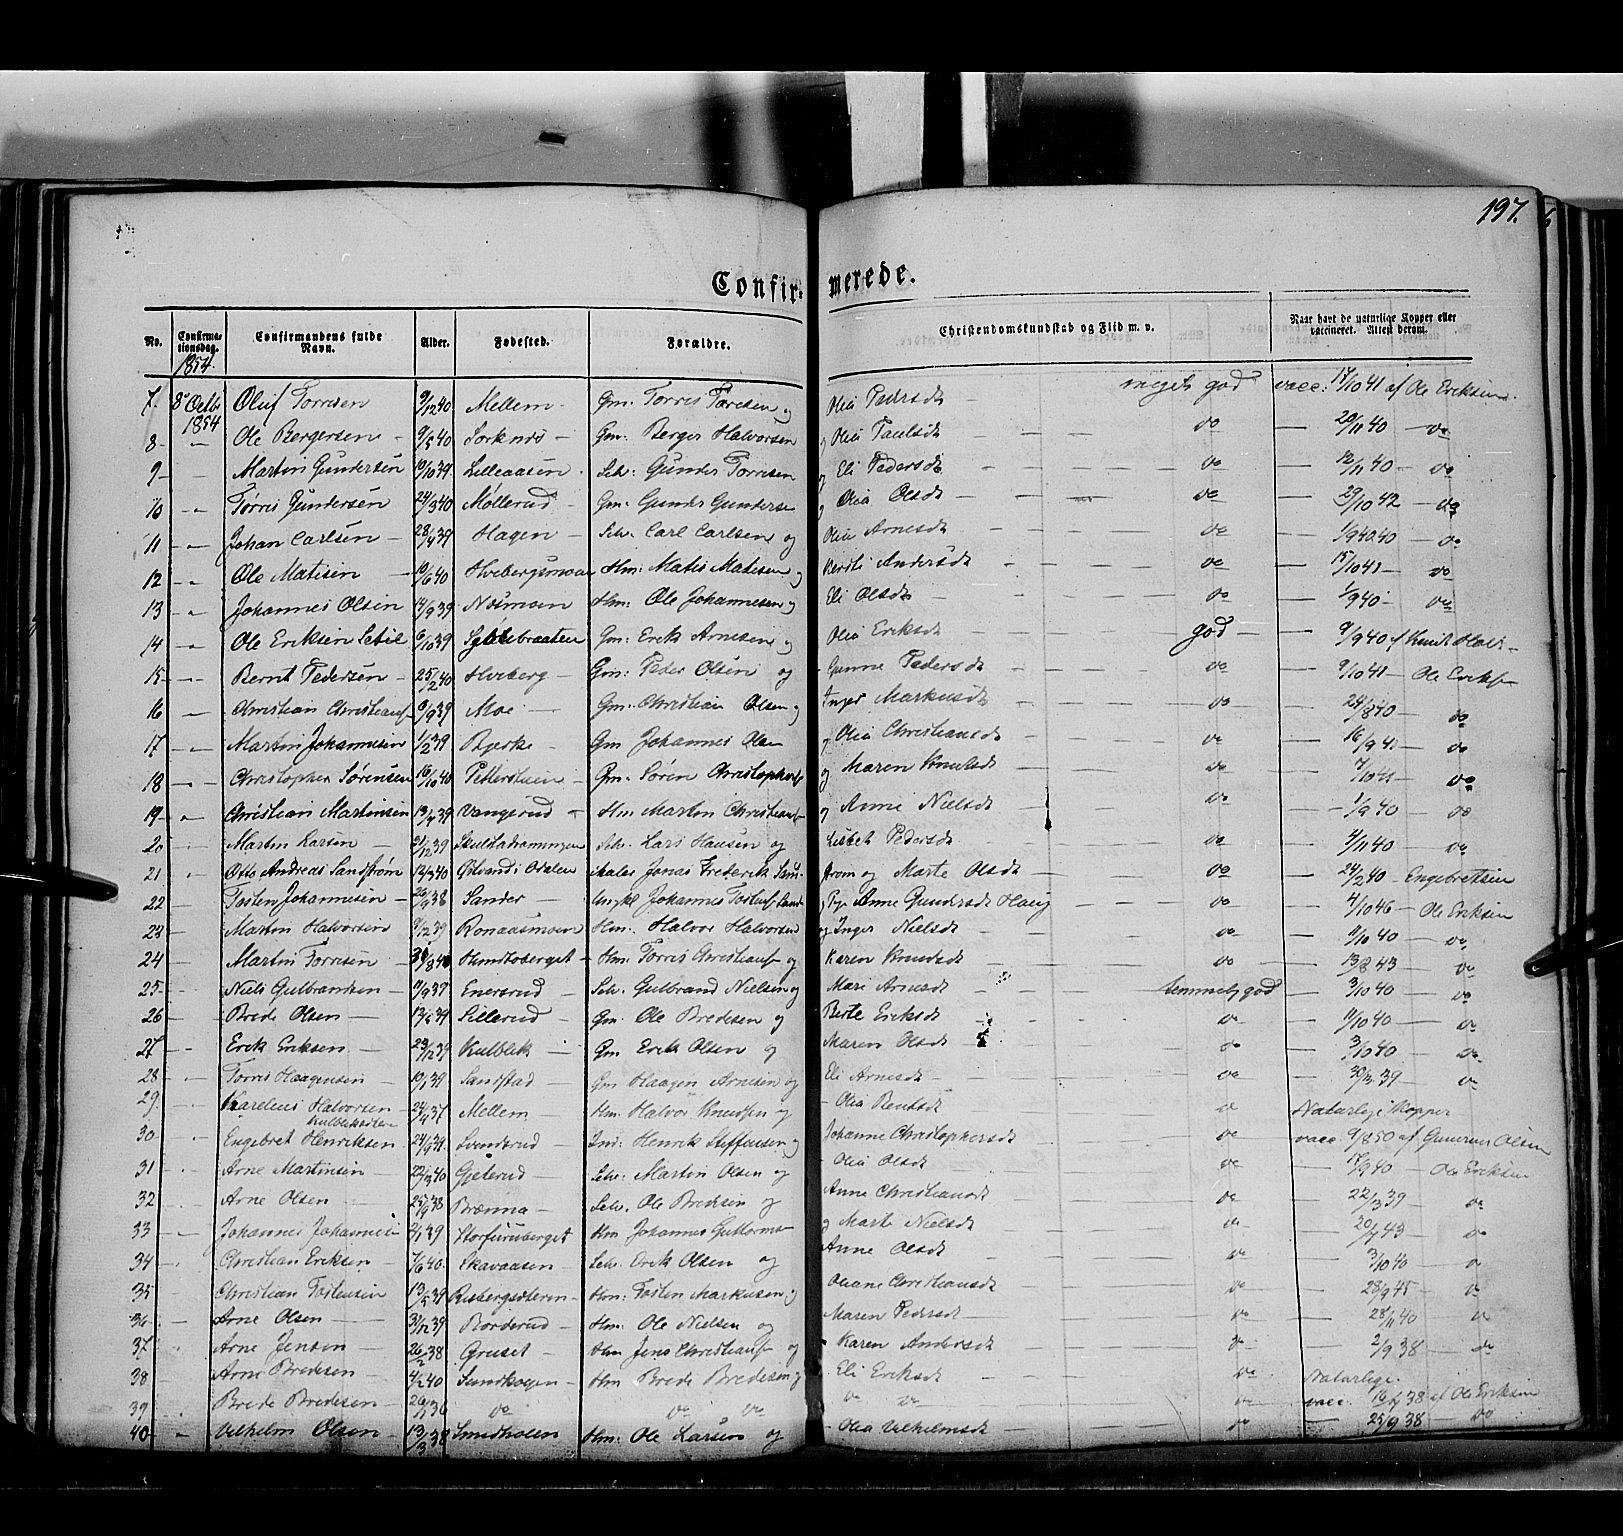 197.
Confirmerede.
No. Confirmationsdag. Confirmandens fulde Navn. Alder. Fødested. Forældre. Christendomskundskab og Flid m. v. Naar havt de naturlige Kopper eller vaccineret. Attest derom.
1854.
7. 8de Octb 1854 Oluf Torrisen 9/12 40 Mellem Gm: Torris Torrisen og Olia Pedersdt meget god vacc: 17/10 41 af Ole Eriksen.
8 " Ole Bergersen 9/5 40 Sorknæs Gm: Berger Halvorsen og Olia Paulsdt do 20/11 40 do
9 " Martin Gundersen 10/10 39 Lilleaasen Selv. Gunder Torrisen og Eli Pedersdt do 12/11 40 do
10 " Tørris Gundersen 24/3 40 Møllerud Gm: Gunder Gunderse og Olia Olsdt do 29/10 42 do
11 " Johan Carlsen 28/4 39 Hagen Selv. Carl Carlsen og Olia Arnesdt do 1/9 40 do
12 " Ole Matisen 10/6 40 Hvebergsmoen Hm: Matis Matisen og Kersti Andersdt do 15/10 41 do
13 " Johannes Olsen 14/9 39 Næsmoen Hm: Ole Johannesen og Eli Olsdt do 1/9 40 do
14 " Ole Eriksen Sætil 6/10 39 Gm: Erik Arnesen og Olia Eriksdt god 9/9 40 af Knut Hals
15 " Bernt Pedersen 25/2 40 Hveberg Gm: Peder Olsen og Gunne Pedersdt do 9/10 41 Ole Eriks
16 " Christian Christians 6/9 39 Moe Gm: Christian Olsen og Inger Markusdt do 24/8 40 do
17 " Martin Johannesen 1/2 39 Bjerke Gm Johannes Olsen og Olia Christiansdt do 16/9 40 do
18 " Christopher Sørensen 16/10 40 Pettersteen Gm: Søren Christophers og Maren Knudsdt do 7/10 41 do
19 " Christian Martinsen 13/4 39 Vangerud Hm Martin Christians og Anne Nielsdt do 1/9 40 do
20 Martin Larsen 21/12 39 Selv. Lars Hansen og Lisbet Pedersdt do 4/11 40 do
21 " Otto Andreas Sandstrøm 12/3 40 Odalen Jonas Frederik Sandstrom og Marte Olsdt do 24/2 40 Engebretsen
22 " Tosten Johannesen 26/9 38 Sander Ungkl Johannes Tostens Sand og Pige Anne Gundersdt Haug do 4/10 46 Ole Eriksen
23 Martin Halvorsen 9/2 39 Ronaasmoen Hm: Halvor Halvorsen og Inger Nielsdt do 9/10 40 do
24 Martin Torrisen Hundtoberget Hm: Torris Christians og Karen Knudsdt do 13/8 43 do
25 Niels Gulbransen 9/9 37 Enersrud Selv. Gulbrand Nielsen og Mari Arnesdt temmelig god 3/10 40 do
26 Brede Olsen 13/6 39 Lillerud Gm. Ole Bredesen og Berte Eriksdt do 11/10 40 do
27 Erik Eriksen 29/12 39 Kulblik Gm Erik Olsen og Maren Olsdt do 3/10 40 do
28 Torris Haagensen 10/1 39 Sandstad Gm Haagen Arnesen og Eli Arnesdt do 30/3 39 do
29 Karelius Halvorsen Kulblikdalen 24/4 37 Mellem Hm. Halvor Knudsen og Olia Bentsdt do Naturlige Kopper
30 Engebret Henriksen 24/9 39 Svendsrud Ind: Henrik Steffensen og Johanne Christophersdt do vacc. 9/8 50 af Gunerus Olsen
31 Arne Martinsen 22/3 40 Gjeterud Selv. Martin Olsen og Olia Olsdt do 17/9 40 Ole Eriksen
32 Arne Olsen 25/9 38 Brænna Selv. Ole Bredesen og Anne Christiansdt do 22/3 39 do
33 Johannes Johannesen 2/1 39 Storfuruberget Hm Johannes Guttorms og Marte Nielsdt do 20/7 43 do
34 Christian Eriksen 7/6 40 Skavaasen Selv. Erik Olsen og Anne Olsdt do 3/10 40 do
35 Christian Tostensen 13/5 39 Risbergsæteren Hm: Tosten Markusen og Oliane Christiansdt do 28/9 45 do
36 Arne Olsen 31/12 39 Borderud Hm: Ole Nielsen og Maren Pedersdt do 28/11 40 do
37 Arne Jensen 26/2 38 Gruset Hm Jens Christians og Karen Andersdt do 2/9 38 do
38 Arne Bredesen 4/2 40 Sundhagen Hm Brede Bredesen og Eli Eriksdt do Naturlige.
39 Brede Bredesen do do do do do do vacc. 38 af Ole Eriksen
40 " Vilhelm Olsen 13/3 38 Smidholen Hm: Ole Larsen og Olia Vilhelmsdt do 25/9 38 do